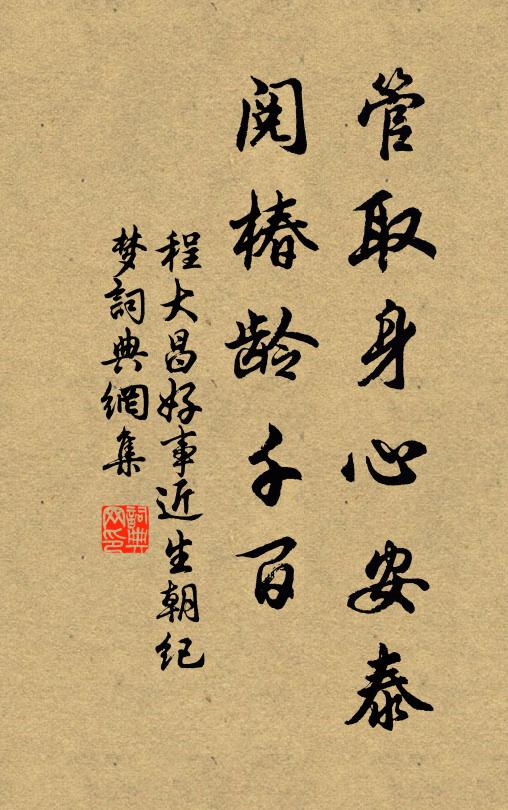 管取身心安泰
阅椿龄千百
程大昌好事近生朝纪
梦詞典網集
詞典网印